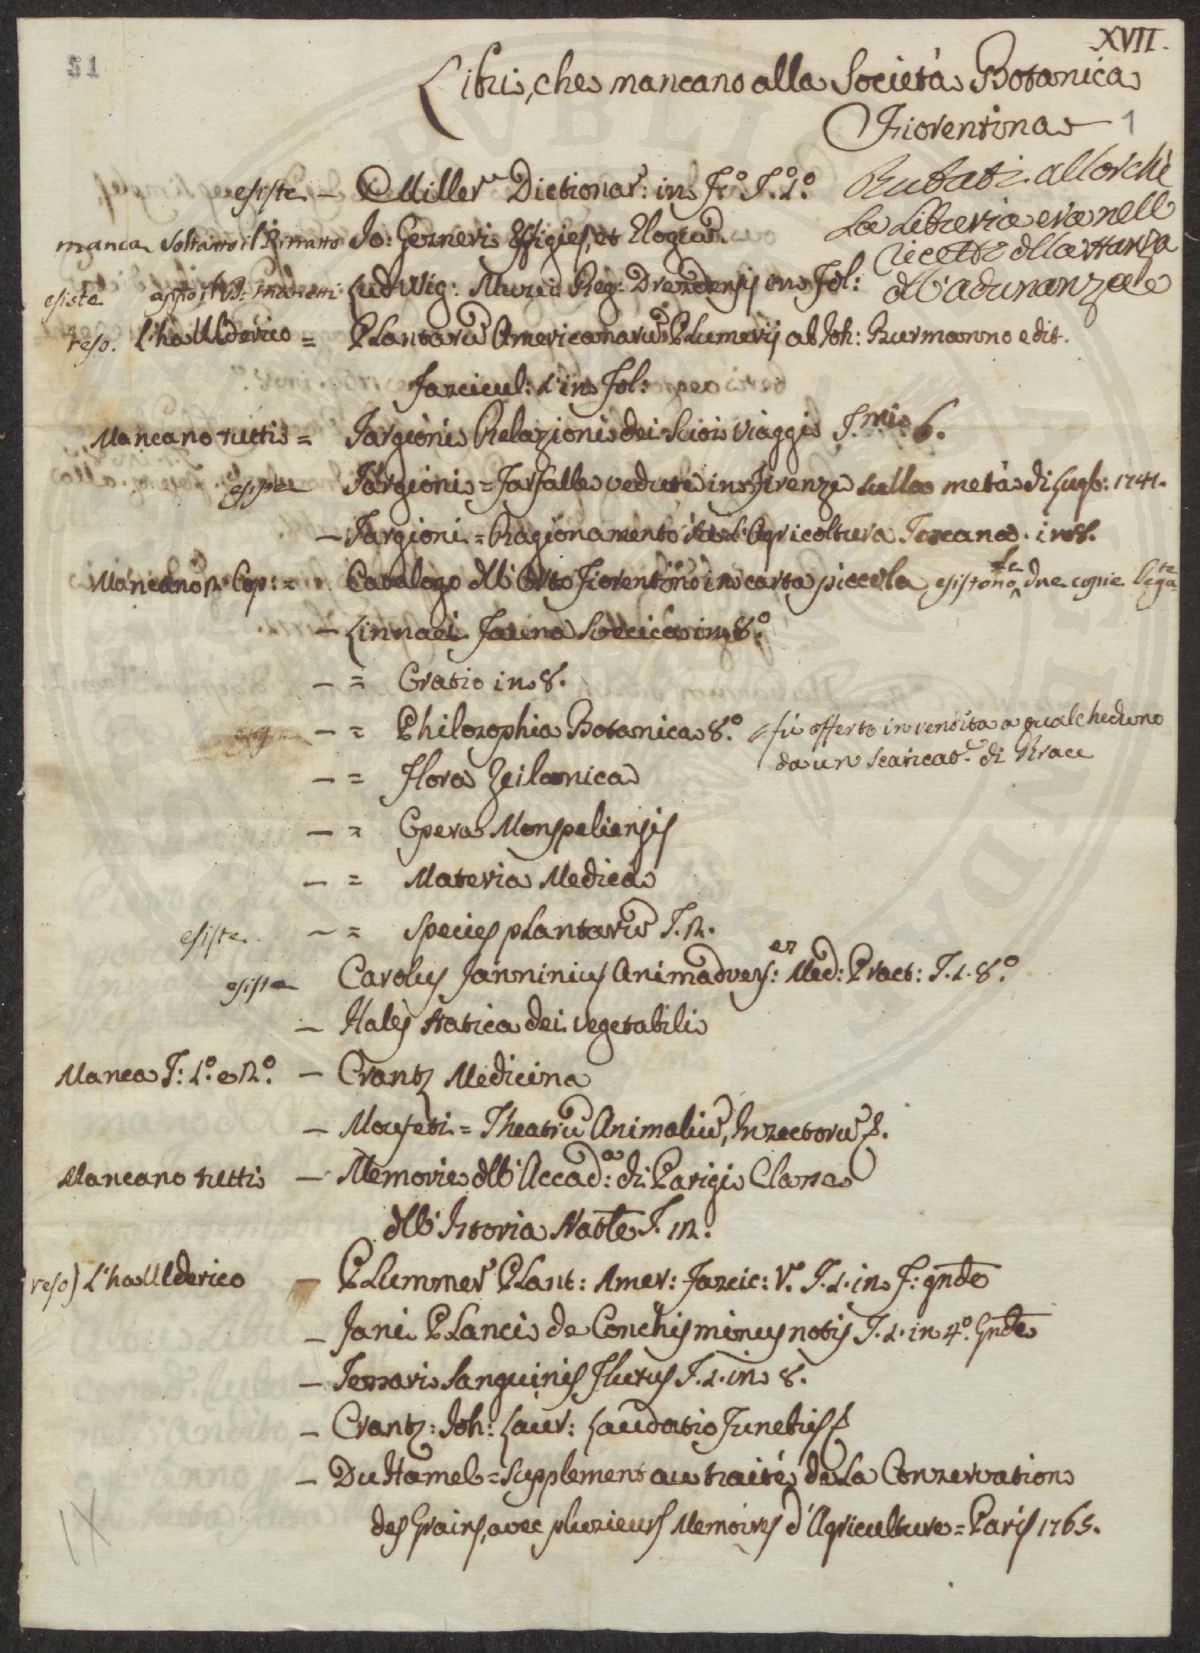 XVII.
51
Libri, che mancano alla Società Botanica
Fiorentina
1
Rubati allorchè
La Libreria era nell
Ricetto della stanza
dell'adunanze
esiste - Miller Dictionar: in F.o T. 1.o
manca soltanto il Ritratto Jo: Gesneri Effigies, et Elogia.
esiste appo il D: Manetti Ludwig: Muzei Reg: Dresdensis in Fol:
reso. L'ha Ulderico = Plantarū Americanarū Plumerij ab Joh: Burmanno edit.
Fascicul: 1. in Fol:
Mancano tutti = Targioni Relazioni dei Suoi Viaggi T.mi 6.
esiste Targioni = Farfalle vedute in Firenze sulla metà di Lugl: 1741.
- Targioni = Ragionamento Agricoltura Toscana. in 8.
Mancano 12 Cop: = Catalogo dell'Orto Fiorentino in carta piccola esistono due copie lega.te
- Linnaei Fauna Svecica in 8.o
- = Oratio in 8.
- = Philosophia Botanica 8.o fù offerto in vendita a qualcheduno
da un Scaricat.e di Brace
- = Flora Zeilanica
- = Opera Monspeliensis
- = Materia Medica
esiste - = Species plantarū T. 2.
esiste Carolus Janninius Animadvers: ex Med: Pract: T. 1. 8.o
- Hales statica dei vegetabili
Manca T: 1.o e 2.o - Crantz Medicina
- Moufeti = Theatrū Animaliū, Insectorū f.
Mancano tutti - Memorie dell'Accad:a di Parigi Classe
dell'Istoria Nat.le T. 12.
reso) L'ha Ulderico Plummer Plant: Amer: Fascic: V. T. 1. in F: gnde
- Jani Planci de Conchis minus notis T. 1. in 4.o Gnde
- Sanguinis Fluxus T. 1. in 8.
- Crantz: Joh: Laur: Laudatio Funebris f
- Du Hamel = Supplement au traité de La Conservation
des Grains, avec plusieurs Memoires d'Agriculture = Paris 1765.
IX